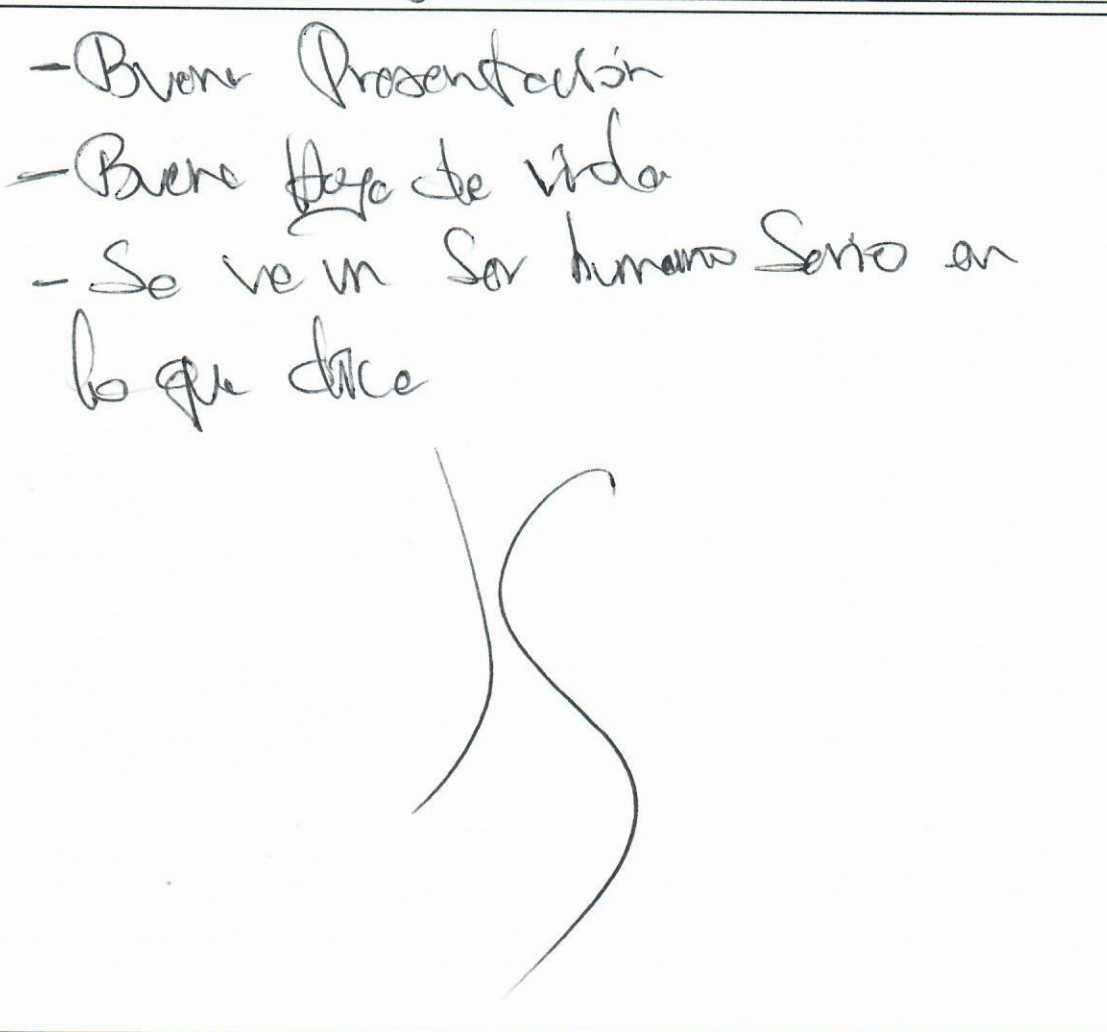 - Buena Presentación
- Buena Hoja de vida
- Se ve un Ser humano Serio en
lo que dice